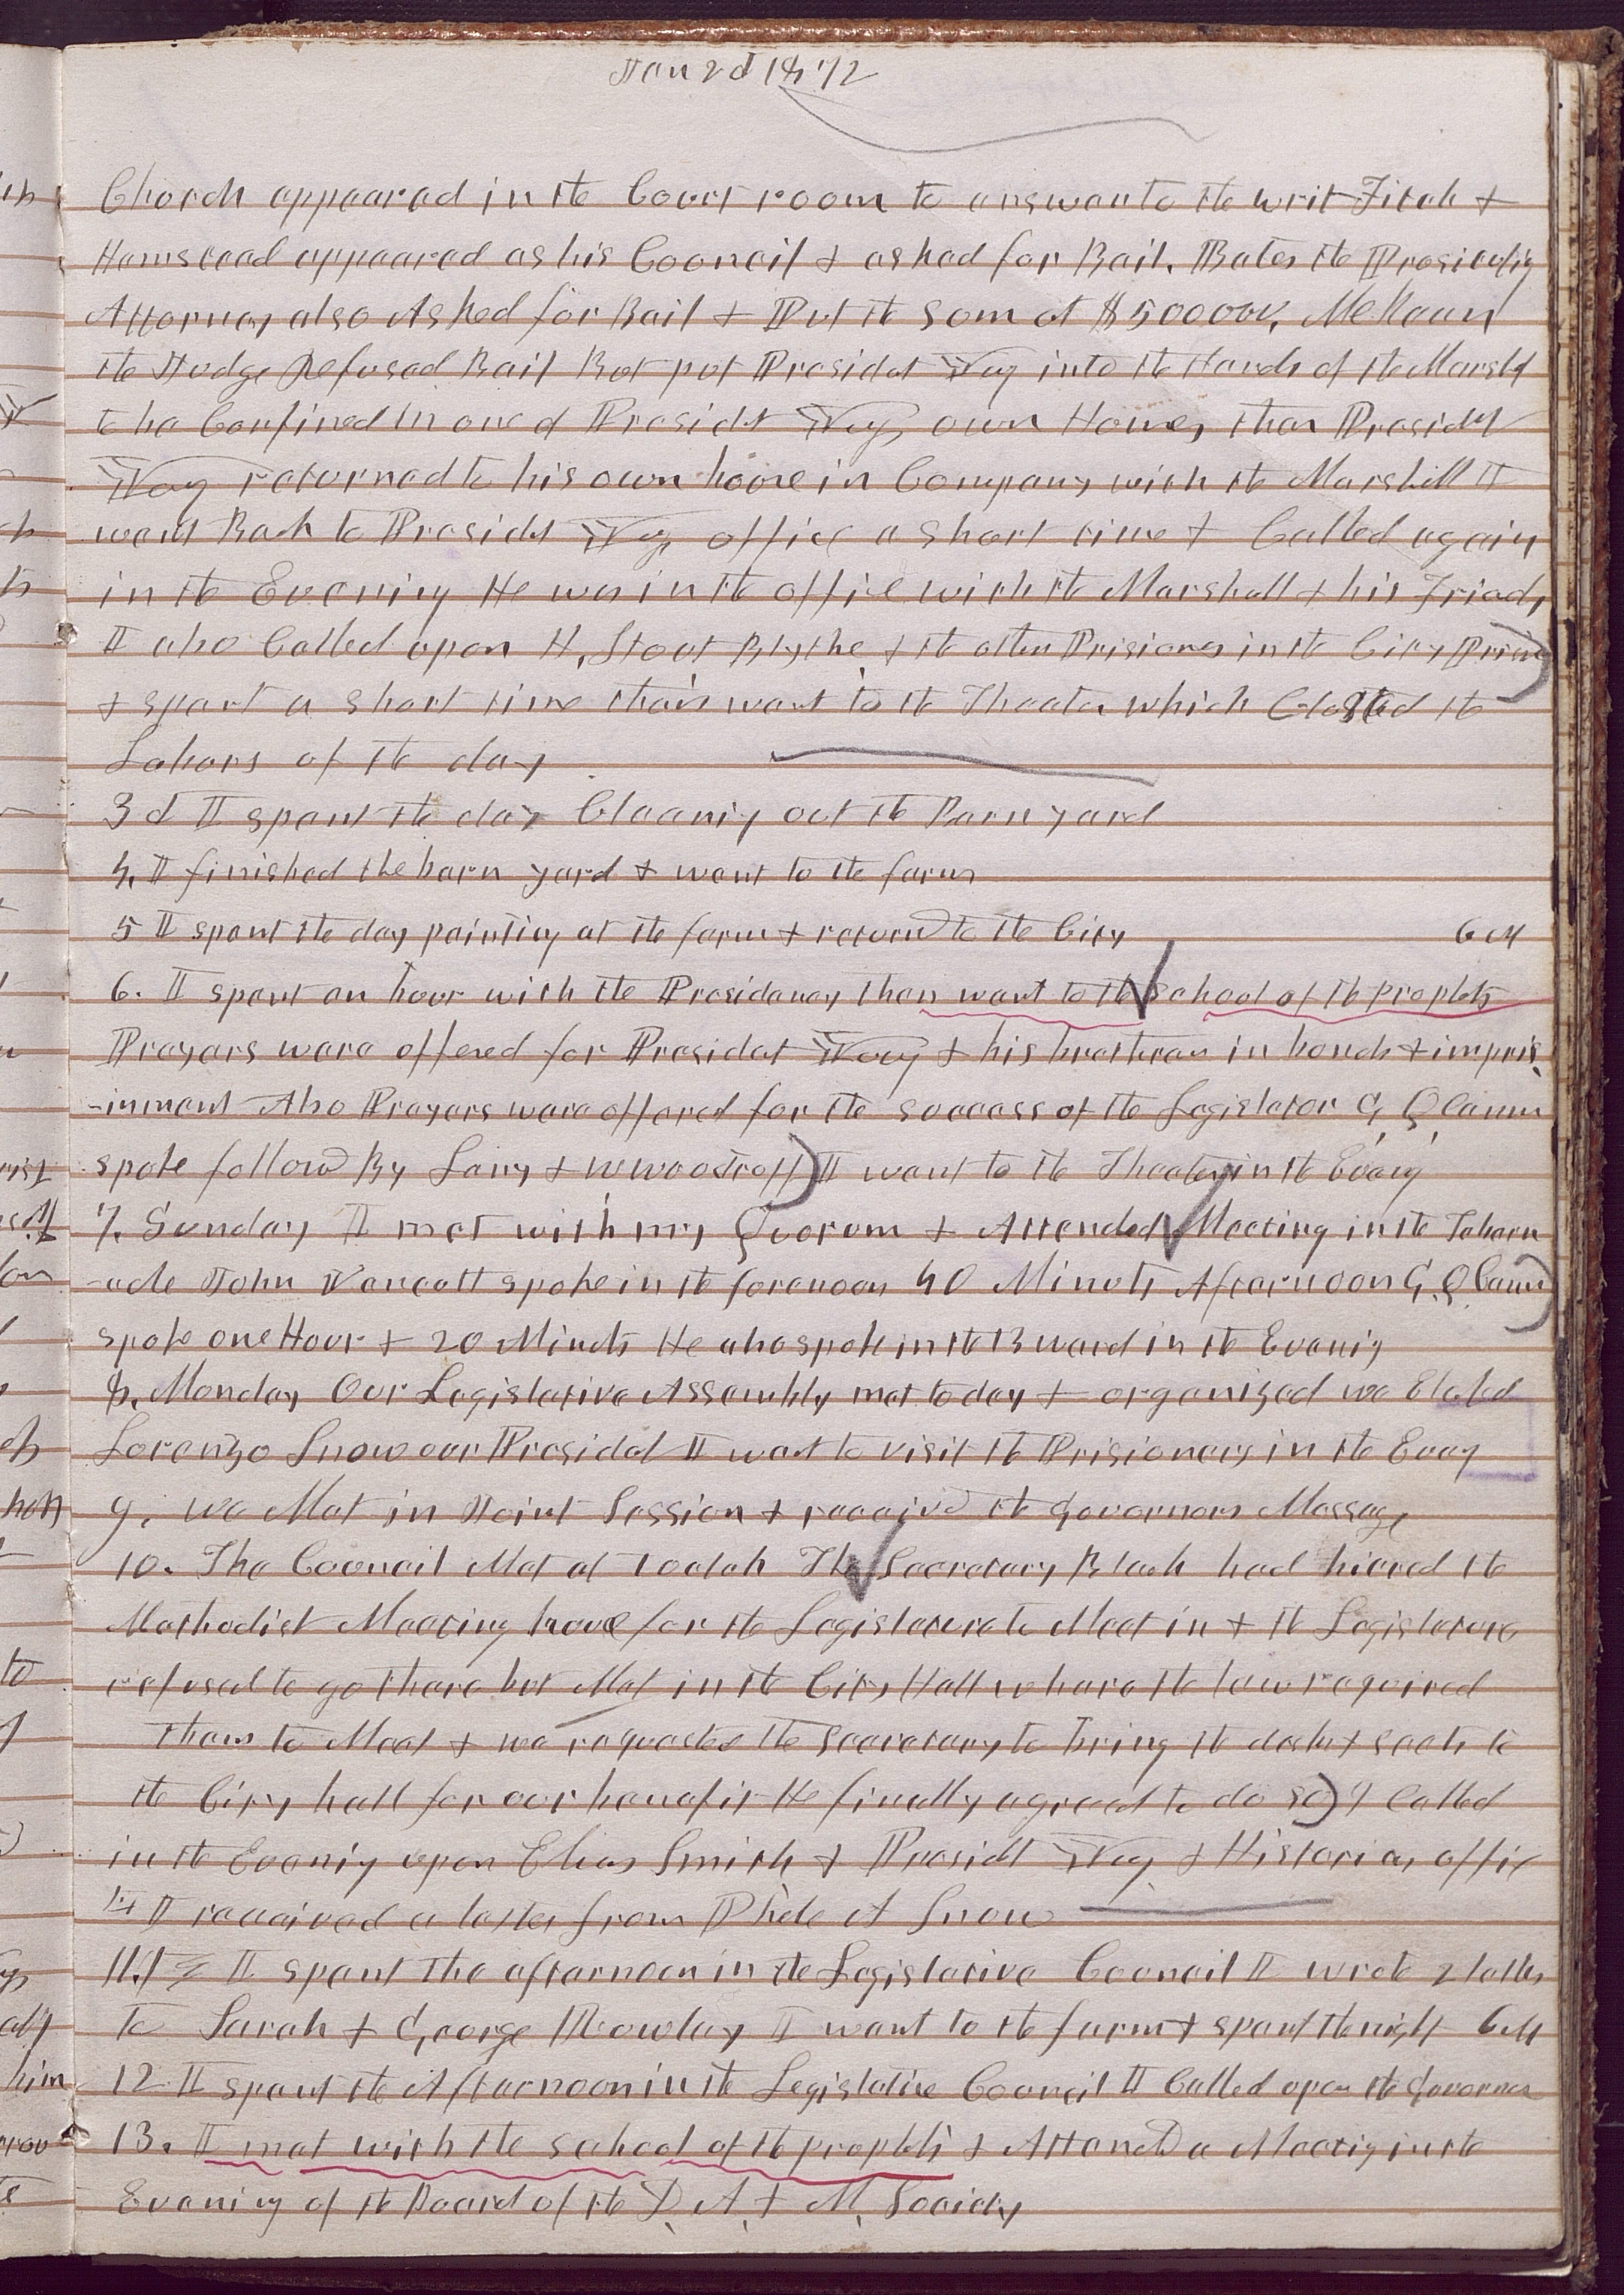 Jan 2d 1872
Church appeared in the Court room to answer to the writ Fitch &
Hemstead appeared as his Council & asked for Bail. Bates the Prosicuting
Attorney also Asked for Bail & Put the sum at $500000. McKean
the Judge Refused Bail But put Presidet Yung into the Hands of the Marshal
to be Confined in one of Presidt Yungs own Homes, then Presidet
Yung returned to his own house in Company with the Marshill I
went Back to Presidet Yung office a short time & Called again
in the Evening He was in the office with the Marshall & his Friends
I also Called upon H, Stout Blythe, & the other Prisioners in the City Prison
& spent a short time then went to the Theater which Closed the
Labors of the day
3d I spent the day Cleaning out the Barn yard
4, I finished the barn yard & went to the farm
5 I spent the day painting at the farm & returnd to the City 6 M
6. I spent an hour with the Presidency then went to the school of the prophets
Prayers were offered for Presidet Yung & his brethren in bonds & impris
-inment Also Prayers were offered for the success of the Legislator G, Q, Cannon
spoke followd By Lany & W Woodruff I went to the Theater in the Eveng
7. Sunday I met with my Quorum & Attended Meeting in the Tabern
-acle John Vancott spoke in the forenoon 40 Minuts Afternoon G. Q Cannon
spoke one Hour & 20 Minuts He also spoke in the 13 ward in the Evenig
8, Monday Our Legislative Assembly met to day & organized we Elected
Lorenzo Snow our Presidet I went to visit the Prisioners in the Eveng
9, we Met in Joint Session & received the Governors Message
10. The Council Met at 1 oclok The Secretary Black had hiered the
Mathodist Meeting house for the Legislature to Meet in & the Legislature
refused to go there but Met in the City Hall where the law required
them to Meet & we requested the Secretary to bring the desks & seats to
the City hall for our benefit He finally agreed to do so I Called
in the Evenig upon Elias Smith & Presidt Yung & Historian offic
I received a letter from Phebe A Snow
11. I spent the afternoon in the Legislative Council I wrote 2 letters
to Sarah & George Rowley I went to the farm & spent the night 6 M
12 I spent the Afternoon in the Legislative Council I Called upon the Governor
13. I met with the school of the prophets & Attend a Meetig in the
Evening of the Board of the D, A, & M, Society